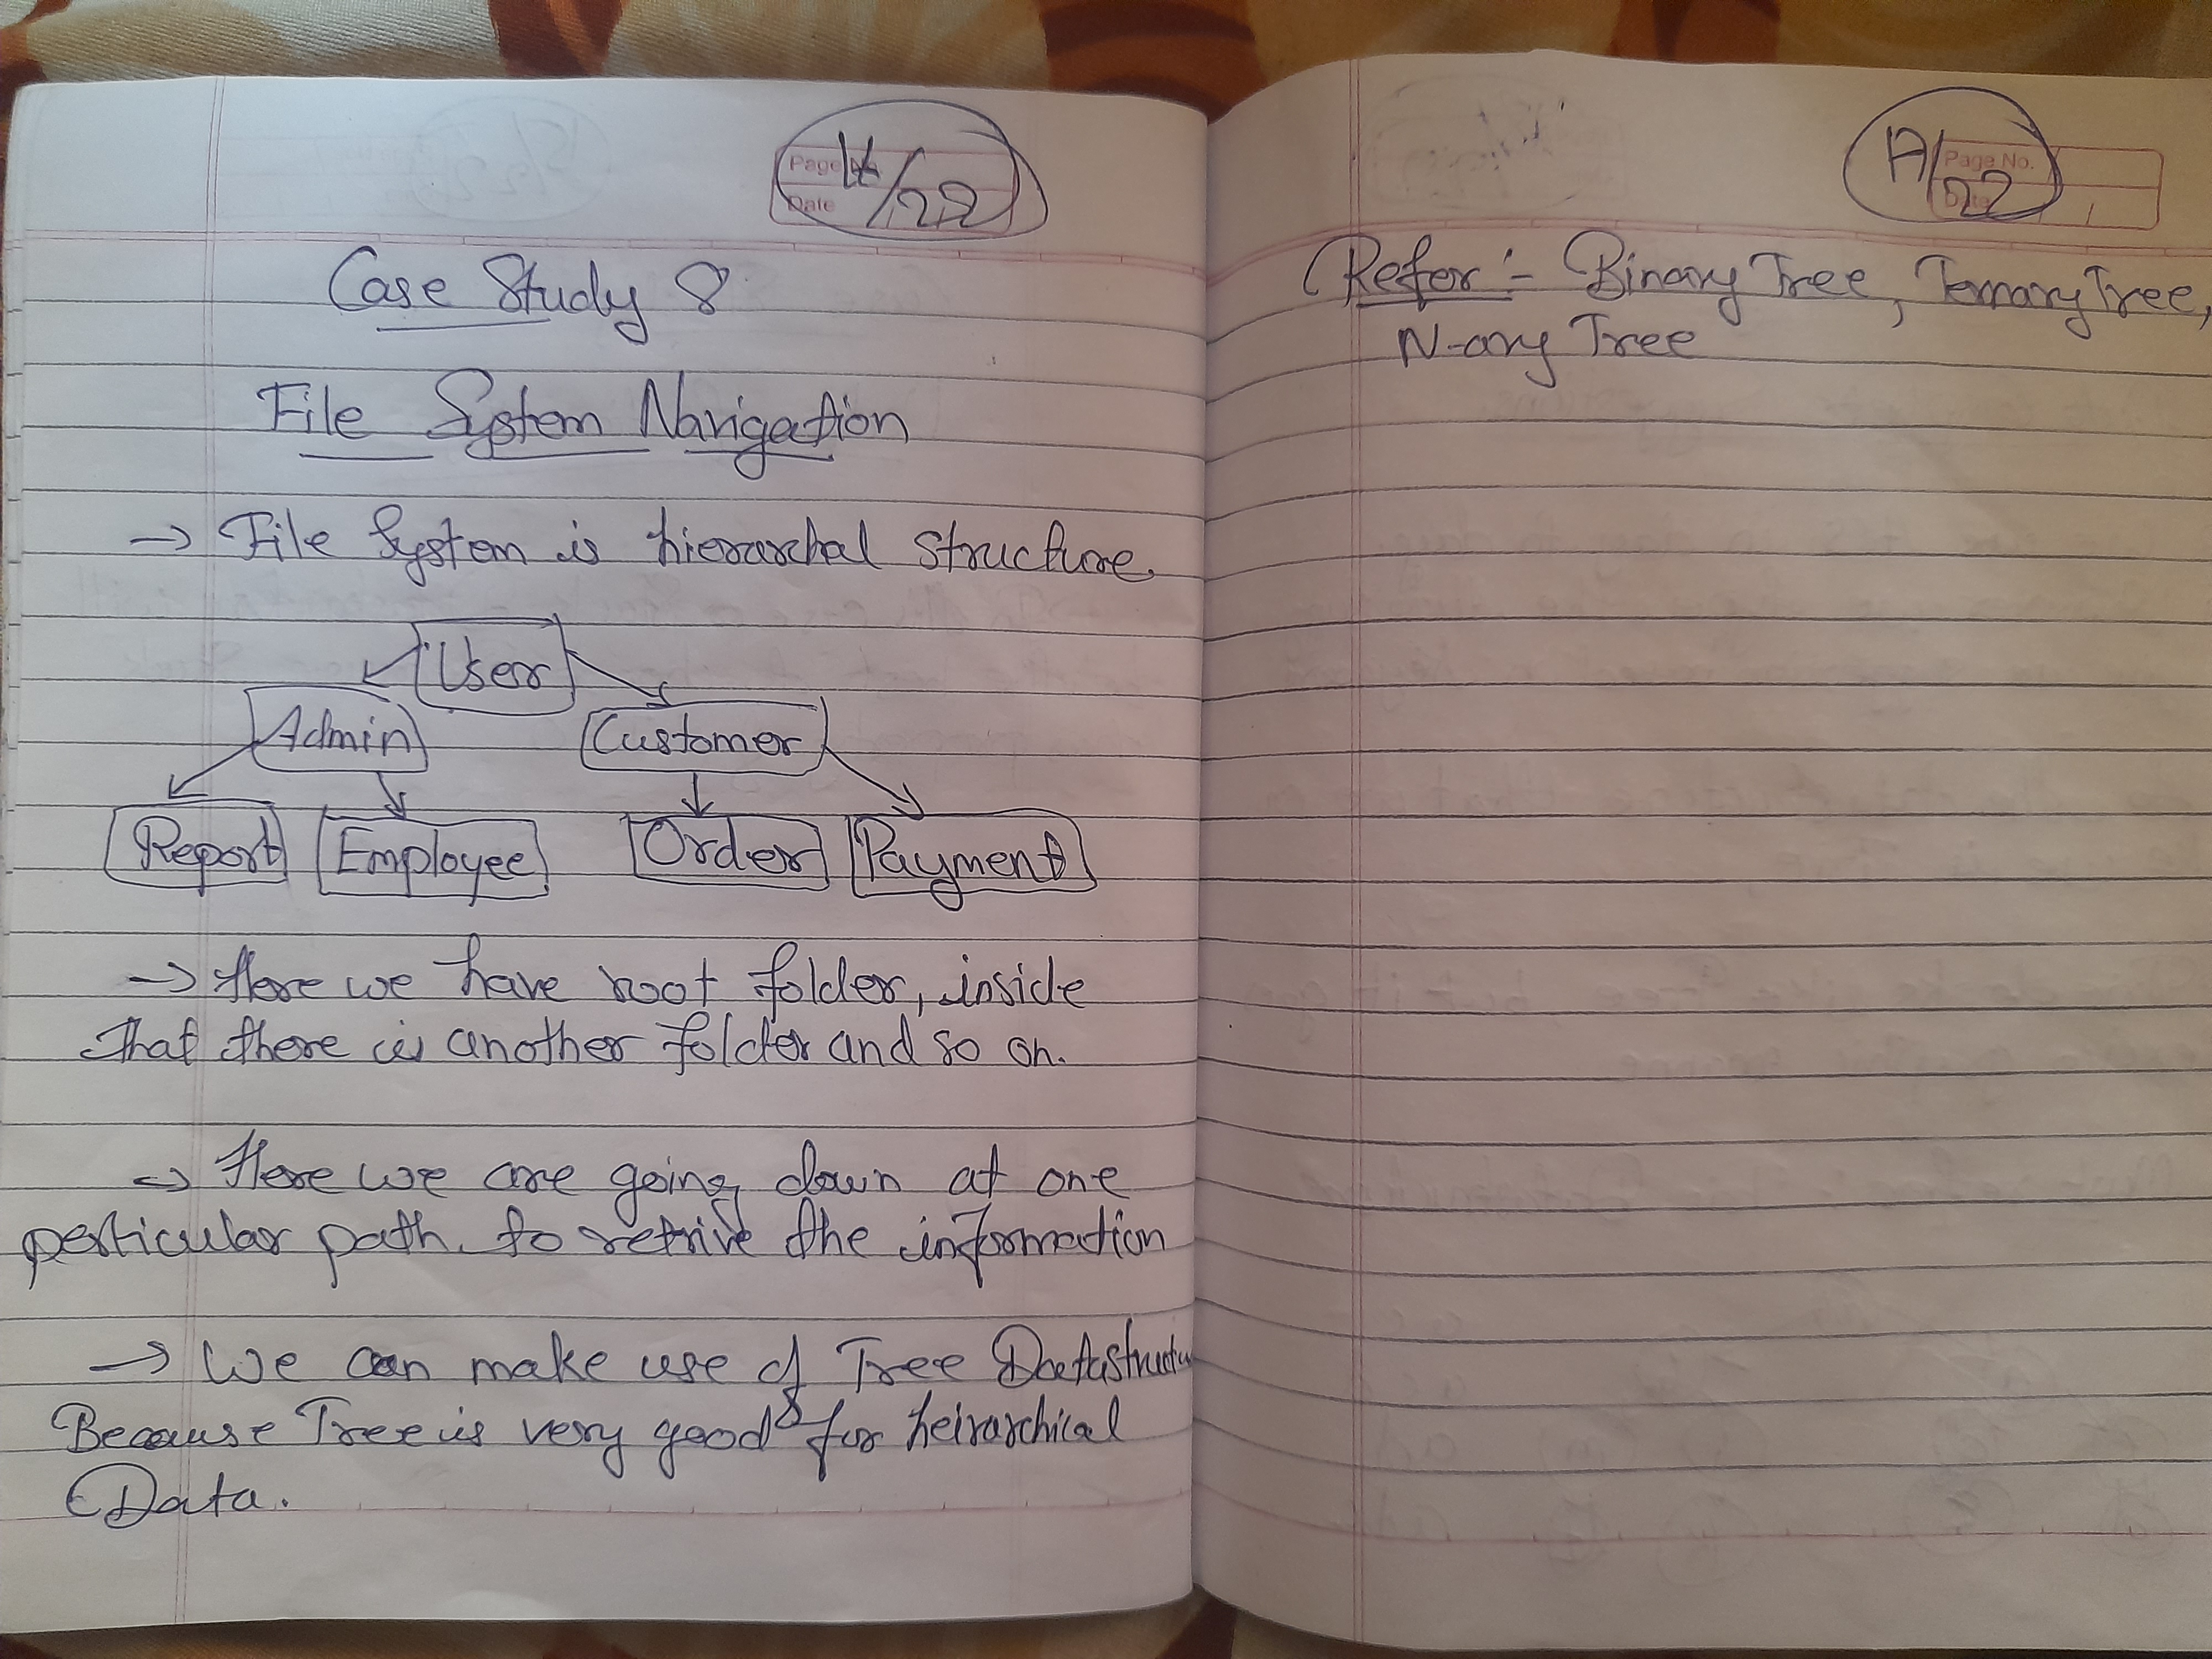 Page No.
Date
22
Case Study 8
File System Navigation
→ File System is hierarchal structure
User
Admin Customer
Report Employee Order Payment
→ Here we have root folder, inside
that there is another folder and so on.
→ Here we are going down at one
perticular path to retrive the information
→ We can make use of Tree Datastructure
Because Tree is very good for heirarchical
Data.
Page No.
Date
22
Refer :- Binary Tree, Ternary Tree,
N-ary Tree